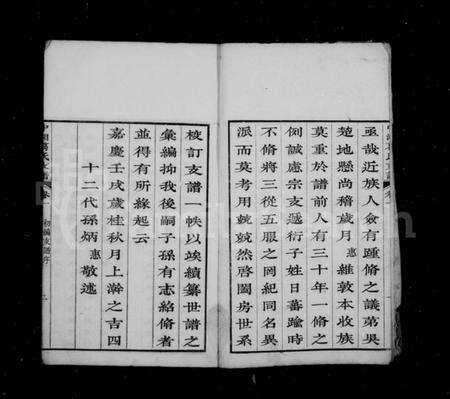 亟哉近族人僉有踵脩之議第吳
楚地懸尚稽歲月惠維敦本收族
莫重於譜前人有三十年一脩之
例誠慮宗支遞衍子姓日蕃踰時
不脩將三從五服之岡紀同名異
派而莫考用兢兢然啓闔房世系
校訂支譜一帙以竢續纂世譜之
彙編抑我後嗣子孫有志紹脩者
並得有所緣起云
嘉慶壬戌歲桂秋月上澣之吉四
十二代孫炳惠敬述